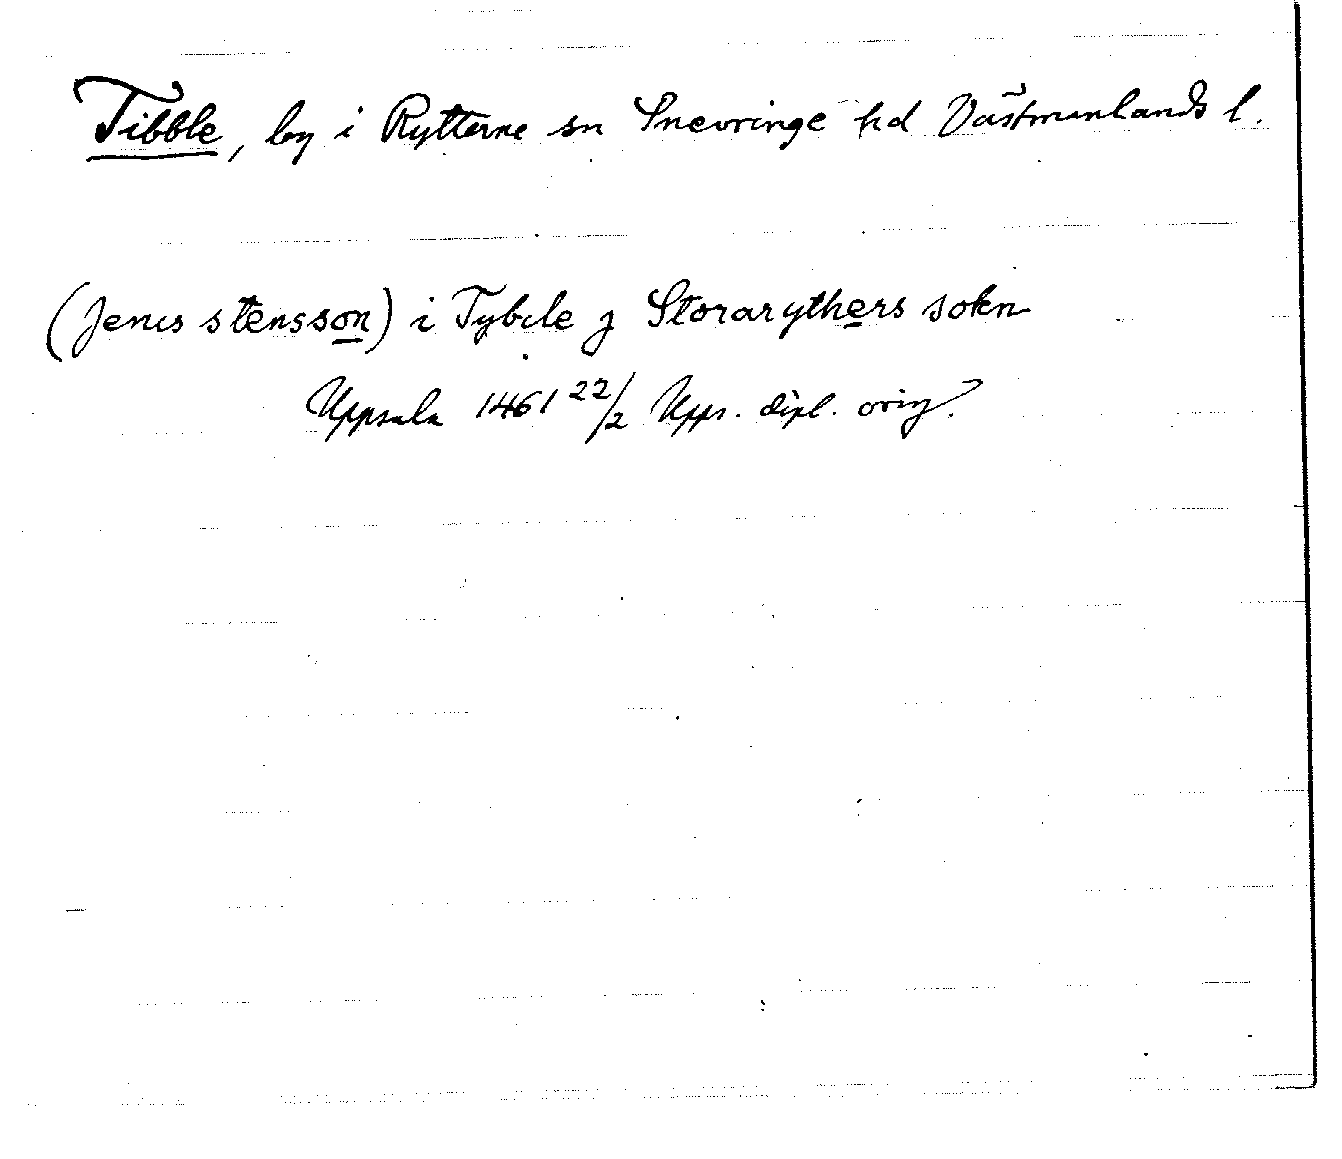 Tibble, by i Rytterne sn Snevringe hd Västmanlands l.
(Jenis stensson) i Tybile j Storarythers sokn
Uppsala 1461 22/2 Upps. dipl. orig.